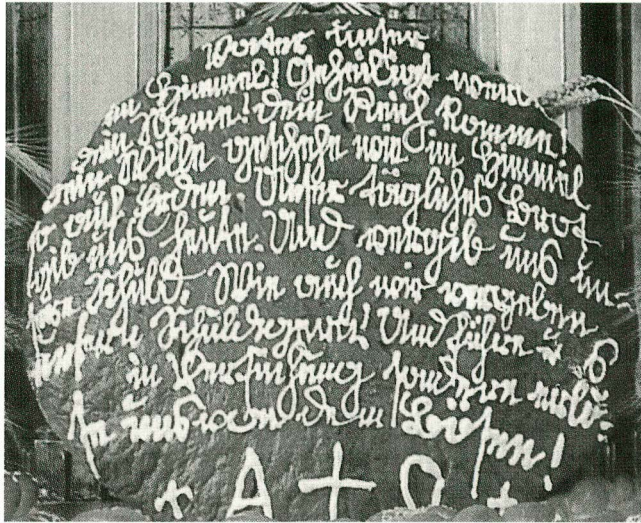 Vater unser
im Himmel! Geheiligt werde
dein Name! Dein Reich komme!
Dein Wille geschehe wie im Himmel
so auf Erden. Unser tägliches Brot
gib uns heute. Und vergib uns un=
sere Schuld. Wie auch wir vergeben
unsern Schuldegern! Und führe uns
in Versuchung sondern erlö=
se uns von dem Bösen!
+ A + O +